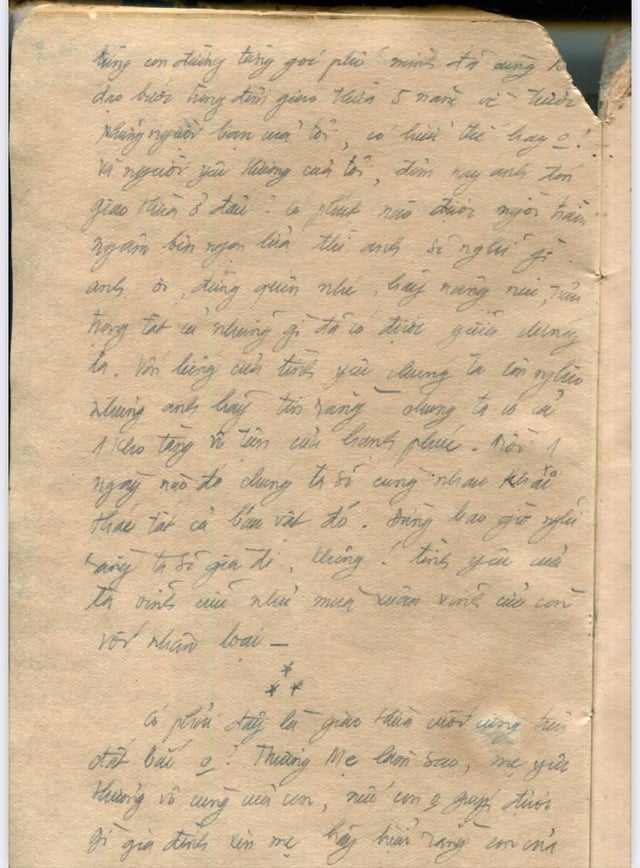 từng con đường từng góc phố mình đã cùng
dạo bước trong đêm giao thừa 5 năm về trước
những người bạn của tôi, có hiểu thế hay o?
Và người yêu thương của tôi, đêm nay anh đón
giao thừa ở đâu? Có phút nào được ngồi trầm
ngâm bên ngọn lửa thì anh sẽ nghĩ gì
anh ơi, đừng quên nhé, hãy nâng niu, trân
trọng tất cả những gì đã có được giữa chúng
ta. Vốn liếng của tình yêu chúng ta còn nghèo
nhưng anh hãy tin rằng chúng ta có cả
1 kho tàng vô tận của hạnh phúc. Rồi 1
ngày nào đó chúng ta sẽ cùng nhau khai
thác tất cả báu vật đó. Đừng bao giờ nghĩ
rằng ta sẽ già đi, không! tình yêu của
ta vĩnh cửu như mùa xuân vĩnh cửu còn
với nhân loại —
***
Có phải đây là giao thừa cuối cùng trên
đất bắc o? Thương Mẹ làm sao, mẹ yêu
thương vô cùng của con, nếu con o giúp được
gì gia đình xin mẹ hãy hiểu rằng con của